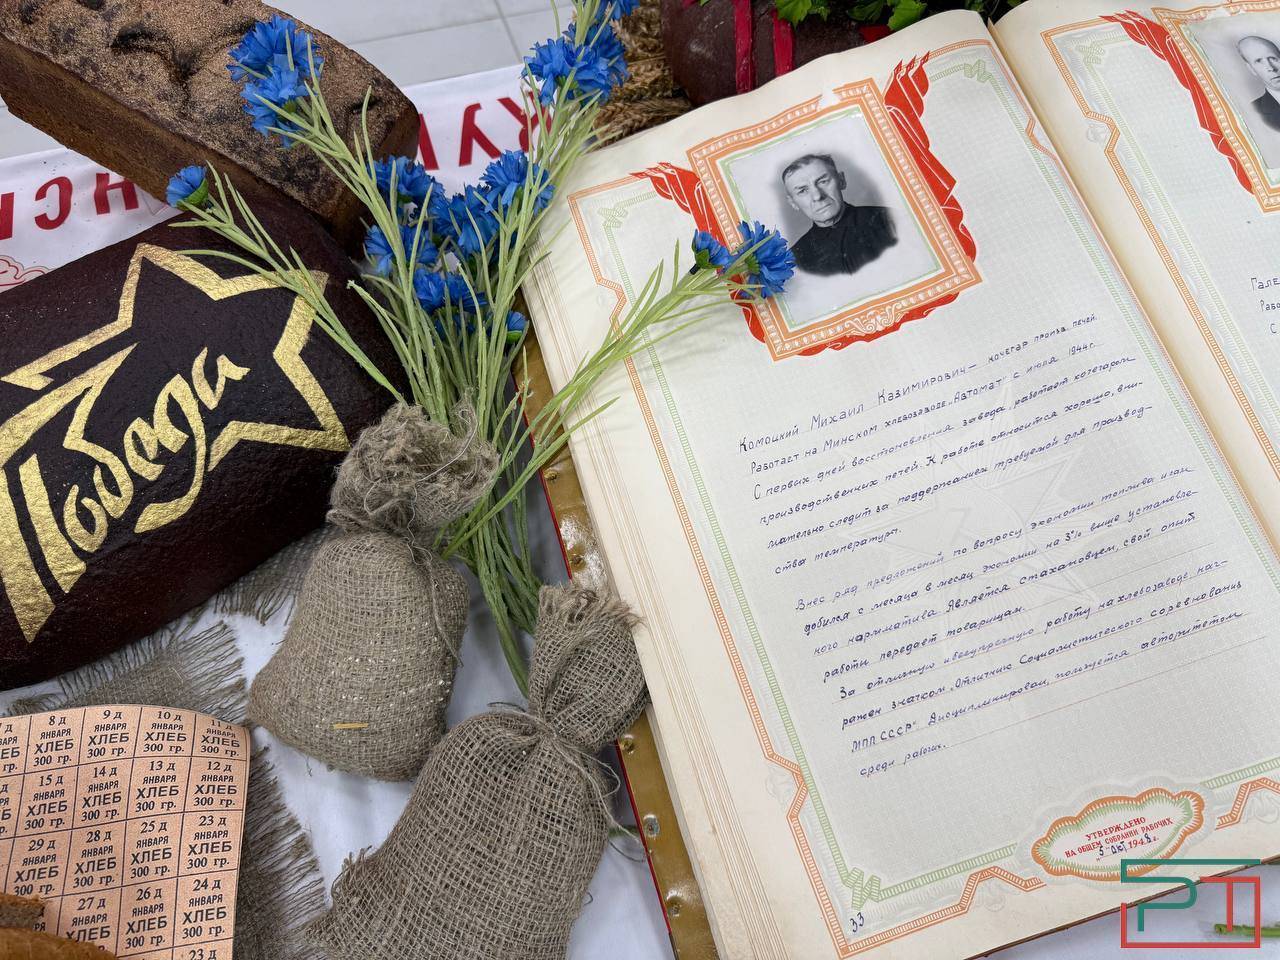 Победа
7 д 8 д 9 д 10 д 11 д
ЯНВАРЯ ЯНВАРЯ ЯНВАРЯ ЯНВАРЯ
ХЛЕБ ХЛЕБ ХЛЕБ ХЛЕБ
300 гр. 300 гр. 300 гр. 300 гр.
15 д 14 д 13 д 12 д
ЯНВАРЯ ЯНВАРЯ ЯНВАРЯ ЯНВАРЯ
ХЛЕБ ХЛЕБ ХЛЕБ ХЛЕБ
300 гр. 300 гр. 300 гр. 300 гр.
29 д 28 д 25 д 23 д
ЯНВАРЯ ЯНВАРЯ ЯНВАРЯ ЯНВАРЯ
ХЛЕБ ХЛЕБ ХЛЕБ ХЛЕБ
300 гр. 300 гр. 300 гр. 300 гр.
27 д 26 д 24 д
ЯНВАРЯ ЯНВАРЯ ЯНВАРЯ
ХЛЕБ ХЛЕБ ХЛЕБ
300 гр. 300 гр. 300 гр.
23 д
Комоцкий Михаил Казимирович – кочегар произв. печей.
Работает на Минском хлебозаводе „Автомат" с июля 1944 г.
С первых дней восстоновления завода, работает кочегаром
производственных печей. К работе относится хорошо, вни-
мательно следит за поддержанием требуемой для производ-
ства температуры.
Внес ряд предложений по вопросу экономии топлива и сам
добился с месяца в месяц экономии на 3% выше установле-
ного нарматива. Является стахановцем, свой опыт
работы передает товарищам.
За отличную и безупречную работу на хлебозаводе, наг-
ражен значком „Отличник Социалистического соревнования
МПП СССР". Дисциплинирован, пользуется авторитетом
среди рабочих.
УТВЕРЖДЕНО
НА ОБЩЕМ СОБРАНИИ РАБОЧИХ
„5" окт. 1948 г.
33
Гале
Рабо
С
РТ